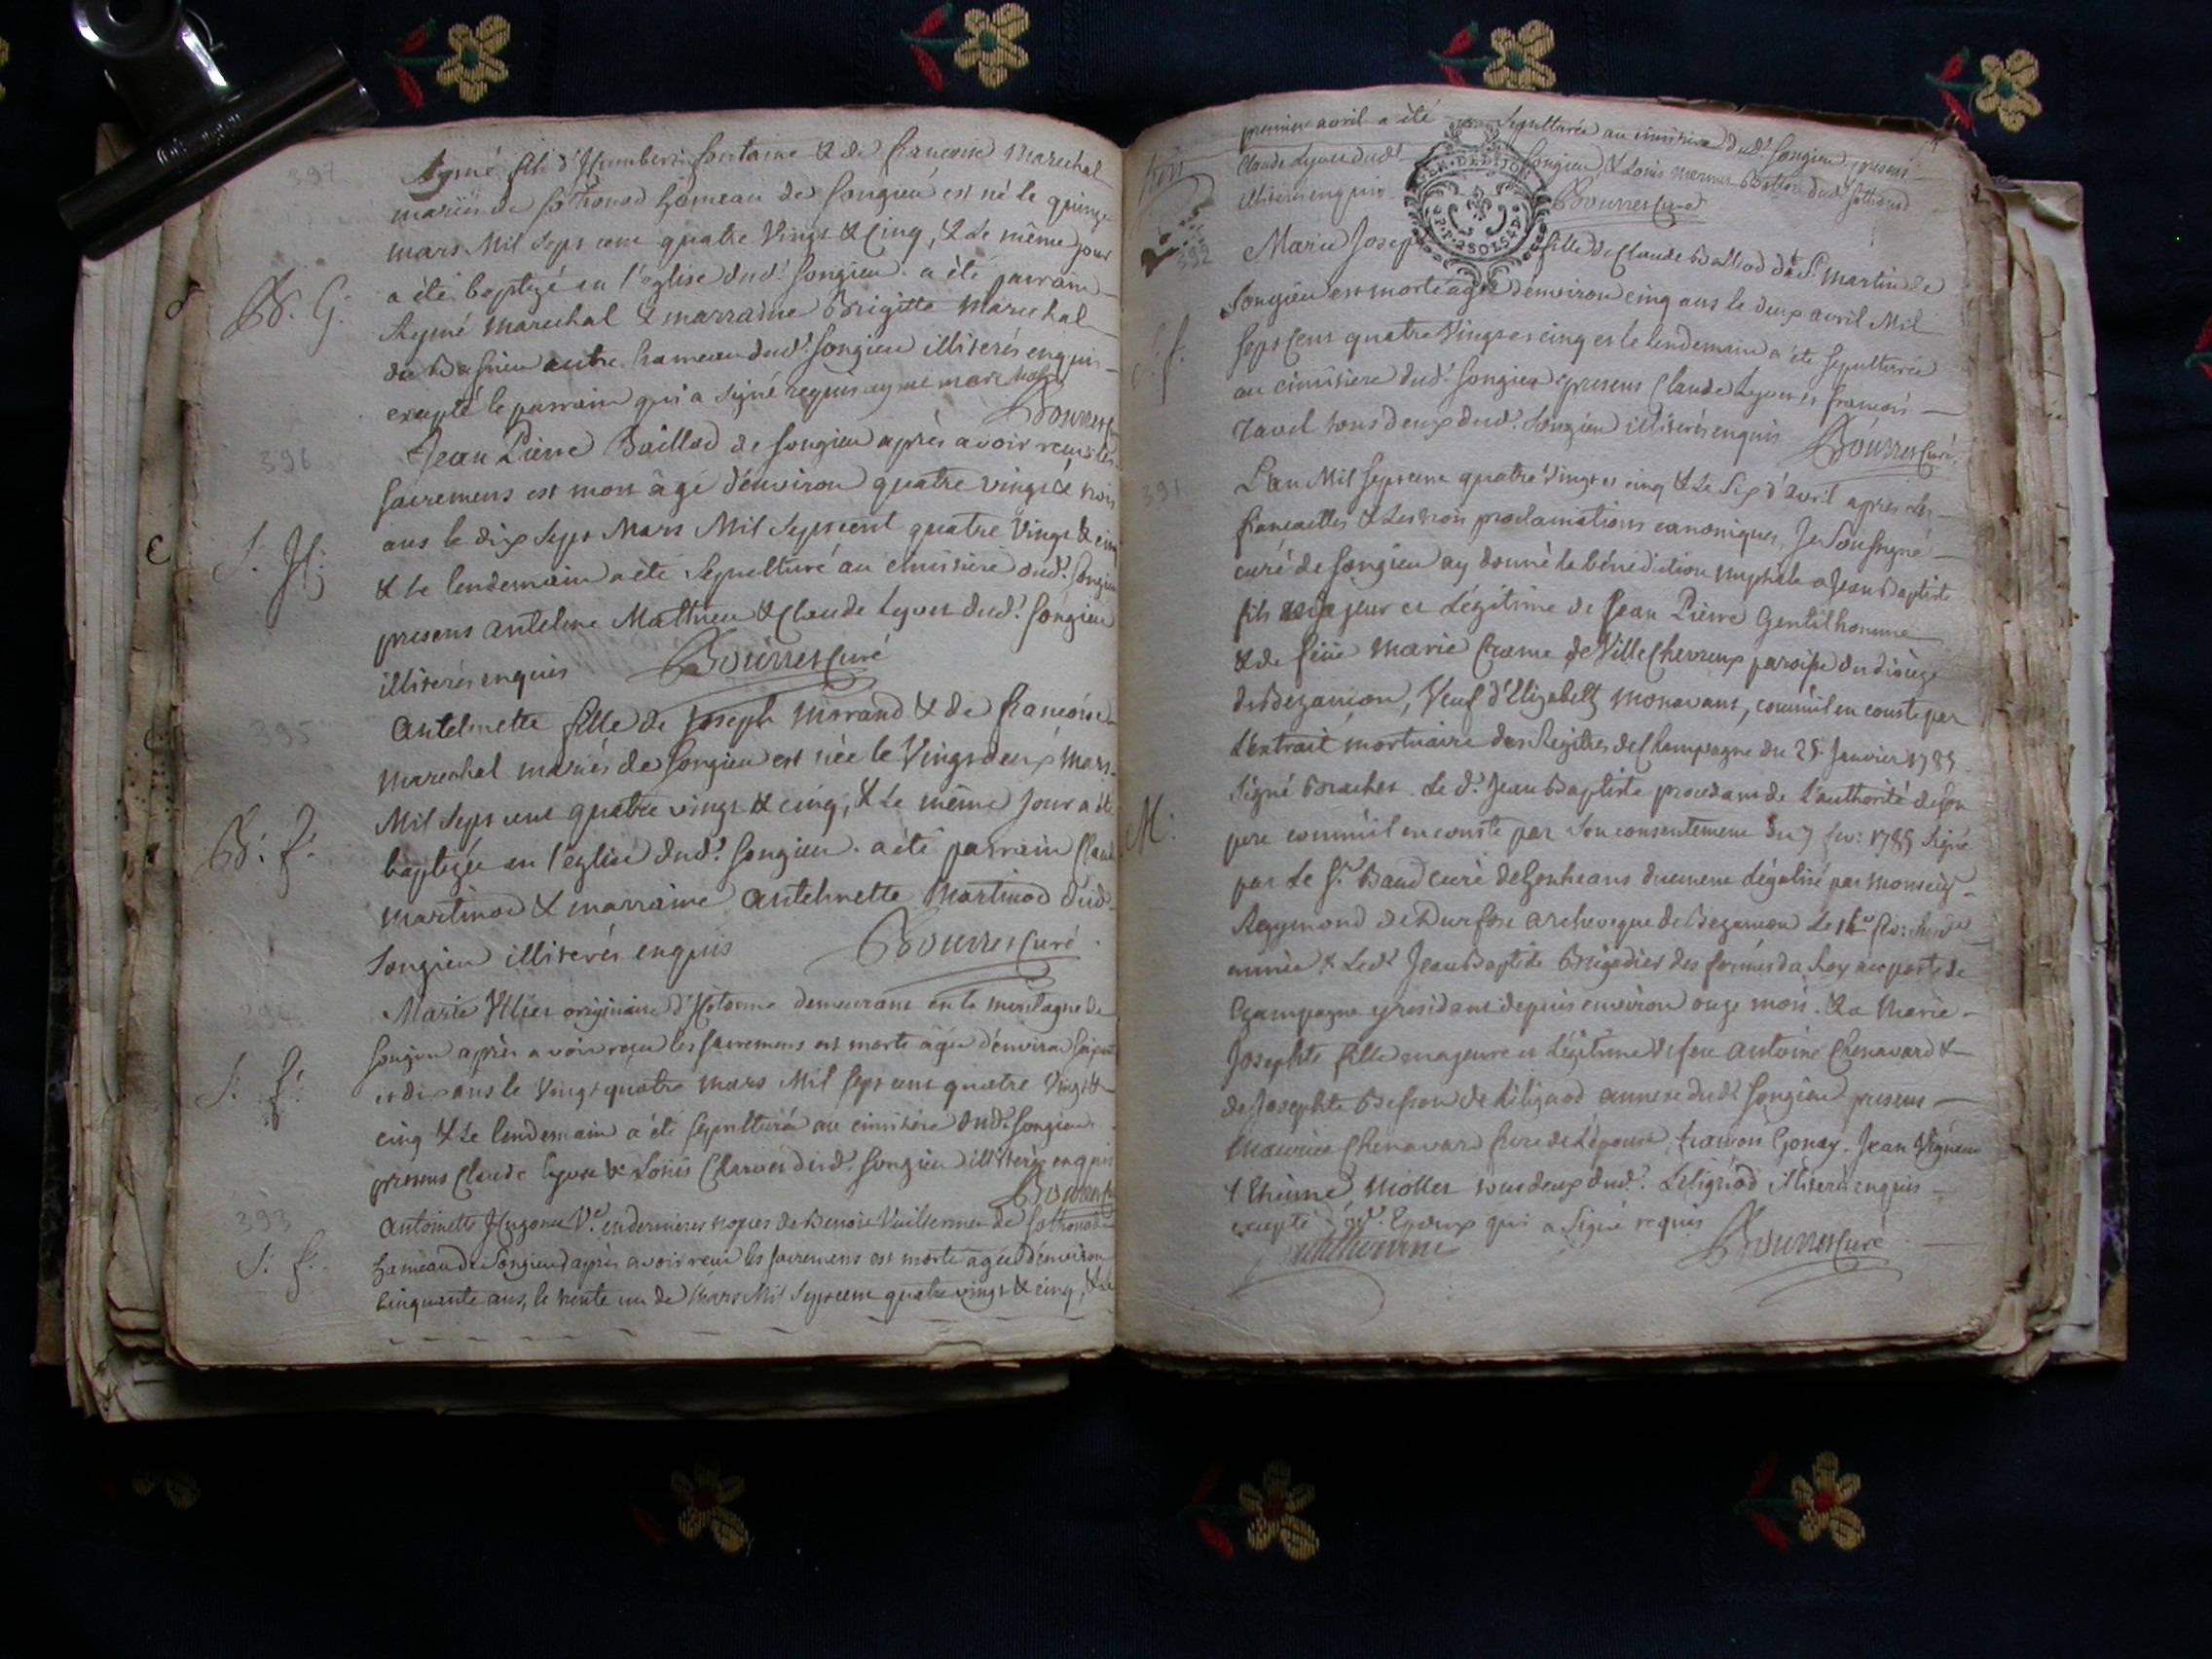 397
Aymé fils d'Humbert fontaine & de françoise Marechal
mariés de sothonod hameau de Songieu est né le quinze
mars Mil Sept cent quatre Vingt & Cinq, & Le même jour
a été baptizé en l'eglise dud.t Songieu. a été parrain
Aymé Marechal & marraine Brigitte Marechal
de Bassieu autre hameau dud.t Songieu illiterés enquis
B. G.
excepté le parrain qui a signé requis ayme marechal
Bourret
396
Jean Pierre Baillod de Songieu après avoir recu les
sacremens est mort âgé d'environ quatre vingt & trois
ans le dix Sept Mars Mil Sept cent quatre Vingt & cinq
S. H.
& le lendemain a été Sepulturé au cimitiere dud.t Songieu
presens antelme Mathieu & Claude Lyvet dud.t Songieu
illiterés enquis Bourret Curé
395
Antelmette fille de Joseph Morand & de françoise
Marechal mariés de Songieu est née le Vingt deux mars
Mil Sept cent quatre vingt & cinq, & Le même Jour a été
B. f.
baptizée en l'eglise dud.t Songieu. a été parrain Claude
Martinod & marraine Antelmette Martinod dud.
Songieu illiterés enquis Bourret Curé
394
Marie originaire d'Hotonne demeurant en la montagne de
Songieu après avoir reçu les sacremens est morte âgée d'environ
S. f.
et dix ans le Vingt quatre mars Mil Sept cent quatre Vingt &
cinq & Le lendemain a été Sepulturée au cimitiere dud.t Songieu
presens Claude Lyvet & Louis dud.t Songieu illiterés enquis
Bourret
393
Antoinette Hugonet V.e en dernieres nopces de Benoit Vuillermet de sothonod
S. f.
hameau de Songieu après avoir recu les sacremens est morte agée d'environ
Cinquante ans, le trente un de Mars Mil Sept cent quatre vingt & cinq, & Le
premier avril a été Sepulturée au cimitiere dud.t Songieu, presens
Claude Lyvet dud.t Songieu, & Louis dud.t sothonod
illiterés enquis Bourret Curé
GEN. DE DIJON
P.P. 2 SOLS 4 D
392
Marie Joseph fille de Claude Balliod de S.t Martin de
Songieu est morte agée d'environ cinq ans le deux avril Mil
Sept Cent quatre Vingt et cinq et le lendemain a été sepulturée
S. f.
au cimitiere dud.t Songieu presens Claude Lyvet et françois
Tavel tous deux dud.t Songieu illiterés enquis Bourret Curé
391
L'an Mil Sept cent quatre Vingt et cinq & Le Six d'avril après Les
fiançailles & Les trois proclamations canoniques, Je Soussigné
curé de Songieu ay donné la bénédiction nuptiale a Jean Baptiste
fils majeur et Légitime de Jean Pierre Gentilhomme
& de feüe Marie de Ville Chevreux paroisse du dioceze
de Bezançon, Veuf d'Elizabeth Monavant, comm'il en conste par
L'extrait mortuaire des Regitres de Champagne du 25 Janvier 1785
Signé Brachet. Le d.t Jean Baptiste procedant de L'authorité de son
M.
pere comm'il en conste par Son consentement du 7 fev: 1785 Signé
par Le S.r Baud curé de duement Légalisé par Monseig.r
Raymond de Durfort archeveque de Bezançon Le
année & Led.t Jean Baptiste Brigadier des fermes du Roy au poste de
Champagne y residant depuis environ onze mois. & a Marie
Josephte fille majeure et Légitime de feu Antoine Chenavard &
de Josephte Besson de Liligniod annexe dud.t Songieu presens
Maurice Chenavard frere de L'épouse, françois Gonay, Jean
& Etienne Mollet tous deux dud.t Lilignod illiterés enquis
excepté led.t Epoux qui a Signé requis Bourret Curé